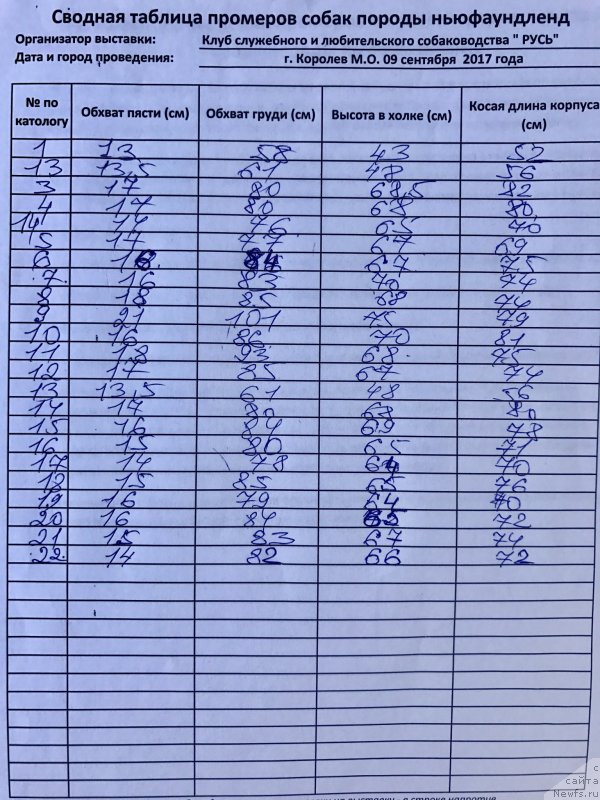 Сводная таблица промеров собак породы ньюфаундленд
Организатор выставки: Клуб служебного и любительского собаководства " РУСЬ"
Дата и город проведения: г. Королев М.О. 09 сентября 2017 года
№ по катологу Обхват пясти (см) Обхват груди (см) Высота в холке (см) Косая длина корпуса (см)
1 13 58 43 52
13 13,5 61 48 56
3 17 80 68,5 82
4 17 80 68 80
14 14 76 65 70
5 17 77 67 69
6 16 84 67 75
7 16 83 70 74
8 18 85 69 74
9 21 101 75 79
10 16 86 70 81
11 18 93 68 75
12 17 85 67 74
13 13,5 61 48 56
14 17 80 68 80
15 16 84 69 78
16 15 80 65 71
17 14 78 64 70
18 15 85 65 76
19 16 79 64 70
20 16 84 65 72
21 15 83 67 74
22 14 82 66 72
с сайта
Newfs.ru